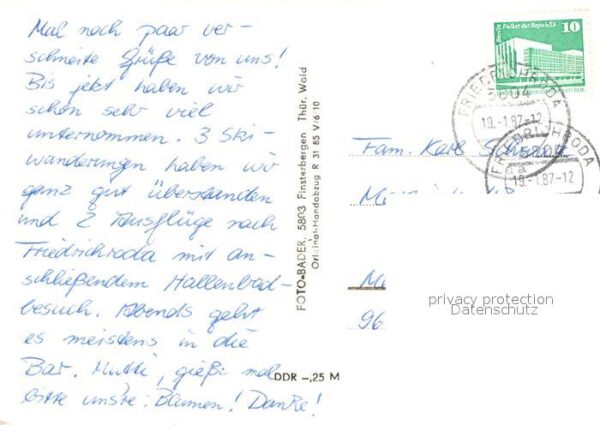 Mal noch paar ver-
schneite Grüße von uns!
Bis jetzt haben wir
schon sehr viel
unternommen. 3 Ski-
wanderungen haben wir
ganz gut überstanden
und 2 Ausflüge nach
Friedrichroda mit an-
schließendem Hallenbad-
besuch. Abends geht
es meistens in die
Bar. Mutti, gieß mal
bitte unsre Blumen! Danke!
FOTO-BADER, 5803 Finsterbergen Thür. Wald
Original-Handabzug R 31 85 V/6 10
DDR -,25 M
Berlin Palast der Republik
10
FRIEDRICHRODA
5804
19.-1.87-12
FRIEDRICHRODA
5804
19.-1.87-12
Fam. Karl
96
privacy protection
Datenschutz